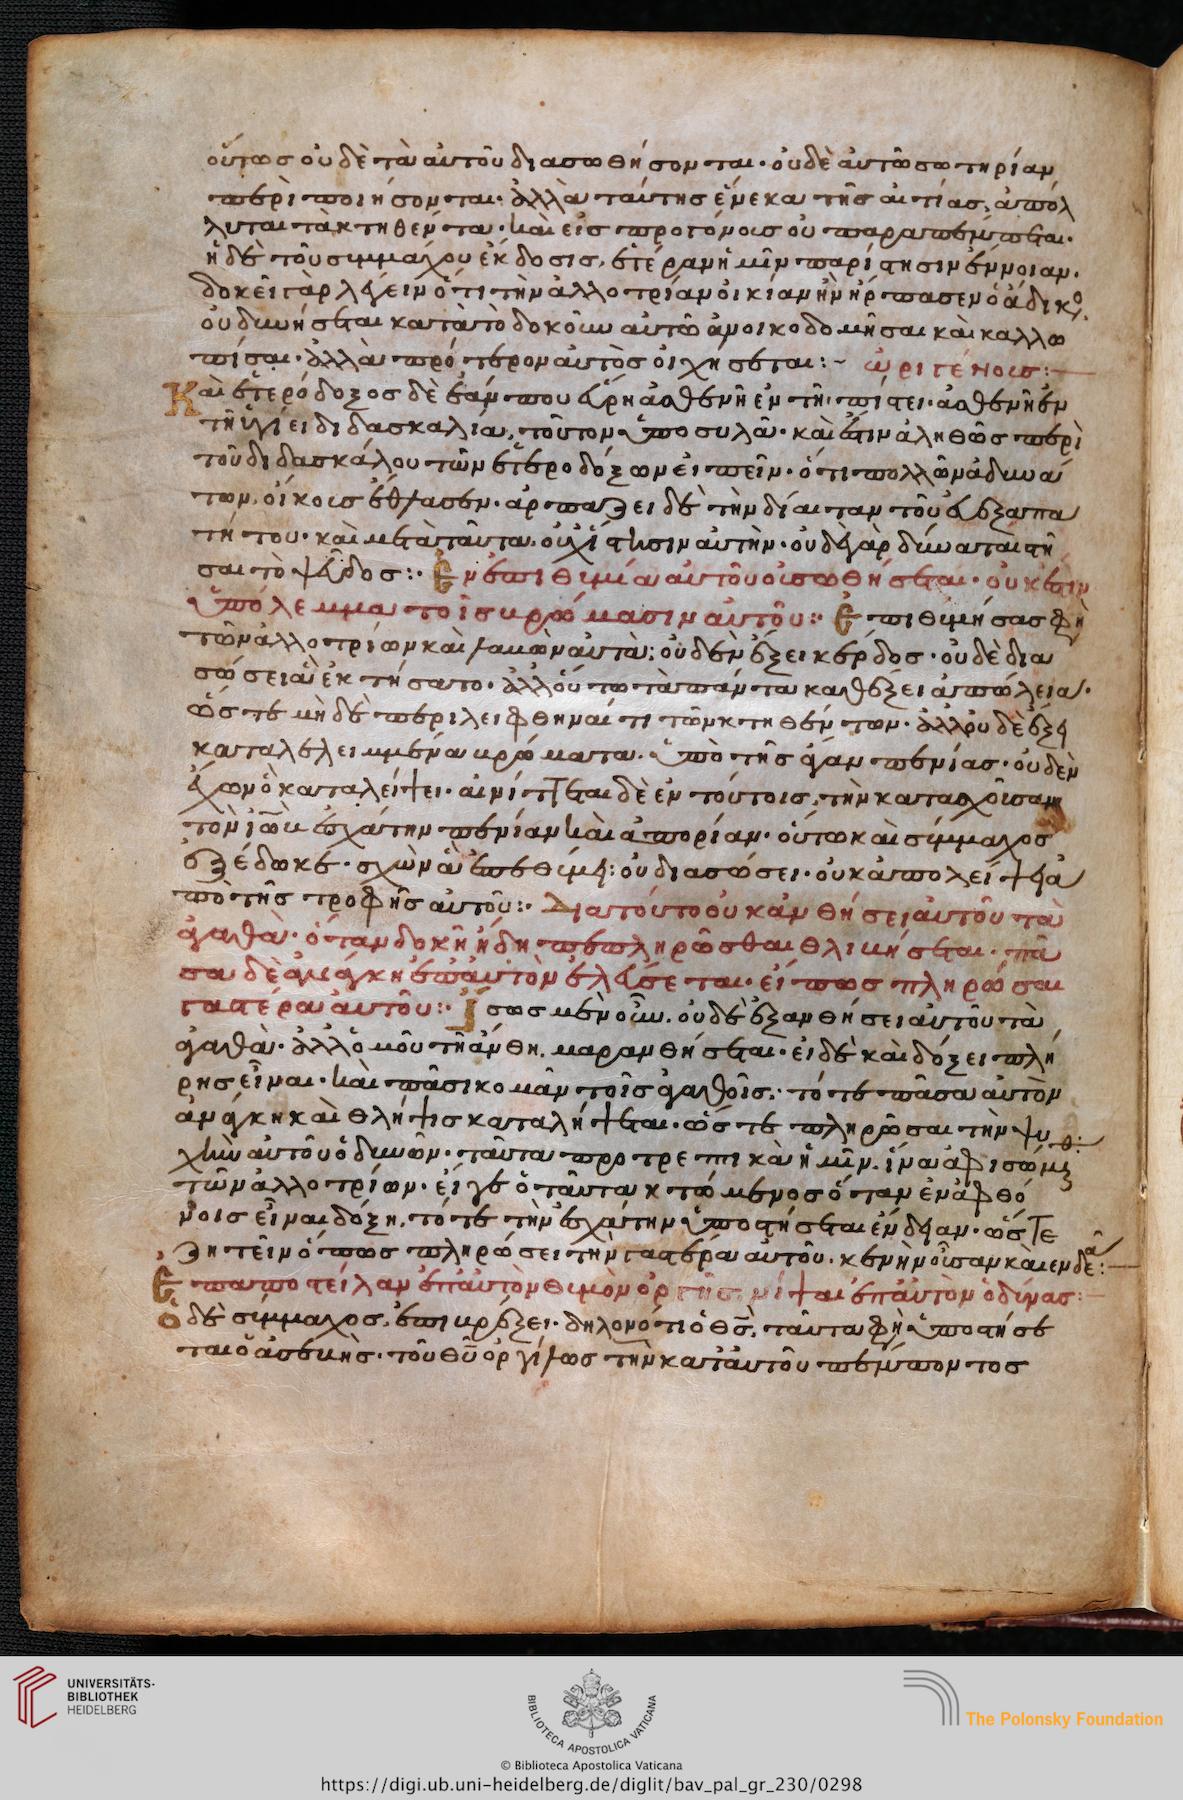 οὕτως οὐδὲ τὰ αὐτοῦ διασωθήσονται· οὐδὲ αὐτῶ σωτηρίαν
περιποιήσονται· ἀλλὰ ταύτης ἕνεκα τῆς αἰτίας, ἀπόλ
λυται τὰ κτηθέντα· καὶ εἰς προγόνοις οὐ παραπέμπεται·
ἡ δὲ τοῦ συμμάχου ἔκδοσις, ἑτέραν ἡμῖν παρίστησιν ἔννοιαν·
δοκεῖ γὰρ λέγειν ὅτι τὴν ἀλλοτρίαν οἰκίαν ἣν ἥρπασεν ὁ ἄδικο
οὐ δυνήσεται κατὰ τὸ δοκοῦν αὐτῶ ἀνοικοδομῆσαι καὶ καλλω
πίσαι· ἀλλὰ πρότερον αὐτὸς οἰχήσεται:~ ὠριγένους:
Καὶ ἑτερόδοξος δὲ ἐάν που εὕρη ἀσθενῆ ἐν τῆ πίστει· ἀσθενῆ ἐν
τῆ ὑγιεῖ διδασκαλία, τοῦτον ὑποσυλᾶ· καὶ ἔστιν ἀληθῶς περὶ
τοῦ διδασκάλου τῶν ἑτεροδόξων εἰπεῖν· ὅτι πολλῶν ἀδυνά
των, οἴκους ἔθλασεν· ἁρπάζει δὲ τὴν δίαιταν τοῦ ἐξαπα
τητοῦ· καὶ μετὰ ταῦτα, οὐχ ἵστησιν αὐτήν· οὐδὲ γὰρ δύναται στῆ
σαι τὸ ψεῦδος:· Ἐν ἐπιθυμία αὐτοῦ οὐ σωθήσεται· οὐκ ἔστιν
ὑπόλειμμα τοῖς βρώμασιν αὐτοῦ:· Ἐπιθυμήσας φη
τῶν ἀλλοτρίων καὶ λαβὼν αὐτὰ; οὐδὲν ἕξει κέρδος· οὐδὲ δια
σώσει ἃ ἐκτήσατο· ἀλλ' οὕτω τὰ πάντα καθέξει ἀπώλεια·
ὥστε μὴ δὲ περιλειφθῆναί τι τῶν κτηθέντων· ἀλλ' οὐδὲ ἕξει
καταλελειμμένα βρώματα· ὑπὸ τῆς ἄγαν πενίας· οὐδὲν
ἔχων ὃ καταλείψει· αἰνίττεται δὲ ἐν τούτοις, τὴν κατασχοῦσαν
τὸν ἰὼβ ἐσχάτην πενίαν καὶ ἀπορίαν· οὕτω καὶ σύμμαχος
ἐξέδωκε· σχὼν ἃ ἐπεθύμει: οὐ διασώσει· οὐκ ἀπολείψει ἀ
πὸ τῆς τροφῆς αὐτοῦ:· Διατοῦτο οὐκ ἀνθήσει αὐτοῦ τὰ
ἀγαθὰ· ὅταν δοκῆ ἤδη πεπληρῶσθαι θλιβήσεται· πᾶ
σα δὲ ἀνάγκη ἐπ' αὐτὸν ἐλεύσεται· εἴ πως πληρώσαι
γαστέρα αὐτοῦ:· Ἴσως μὲν οὖν, οὐδὲ ἐξανθήσει αὐτοῦ τὰ
ἀγαθὰ· ἀλλ' ὁμοῦ τῆ ἄνθη, μαρανθήσεται· εἰ δὲ καὶ δόξει πλή
ρης εἶναι· καὶ πᾶσι κομᾶν τοῖς ἀγαθοῖς· τότε πᾶσα αὐτὸν
ἀνάγκη καὶ θλῆψις καταλήψεται· ὥστε πληρῶσαι τὴν ψυ
χὴν αὐτοῦ ὀδυνῶν· ταῦτα προτρεπτικὰ ἡμῖν, ἵνα ἀφιστώμεθα:
τῶν ἀλλοτρίων· εἴγε ὁ ταῦτα κτώμενος ὅταν ἐν ἀφθό
νοις εἶναι δόξη, τότε τὴν ἐσχάτην ὑποστήσεται ἔνδειαν· ὥστε
ζητεῖν ὅπως πληρώσει τὴν γαστέρα αὐτοῦ, κενὴν οὖσαν καὶ ενδεᾶ:
Ἐπαποστείλαι ἐπ' αὐτὸν θυμὸν ὀργῆς, νίψαι ἐπ' αὐτὸν ὀδύνας:
Ὁ δὲ σύμμαχος, ἐπιβρέξει· δηλονότι ὁ θς, ταῦτα φὴ ὑποστήσε
ται ὁ ἀσεβὴς· τοῦ θυ ὀργίλως τὴν κατ' αὐτοῦ πέμποντος
UNIVERSITÄTS-
BIBLIOTHEK
HEIDELBERG
BIBLIOTECA APOSTOLICA VATICANA
The Polonsky Foundation
© Biblioteca Apostolica Vaticana
https://digi.ub.uni-heidelberg.de/diglit/bav_pal_gr_230/0298